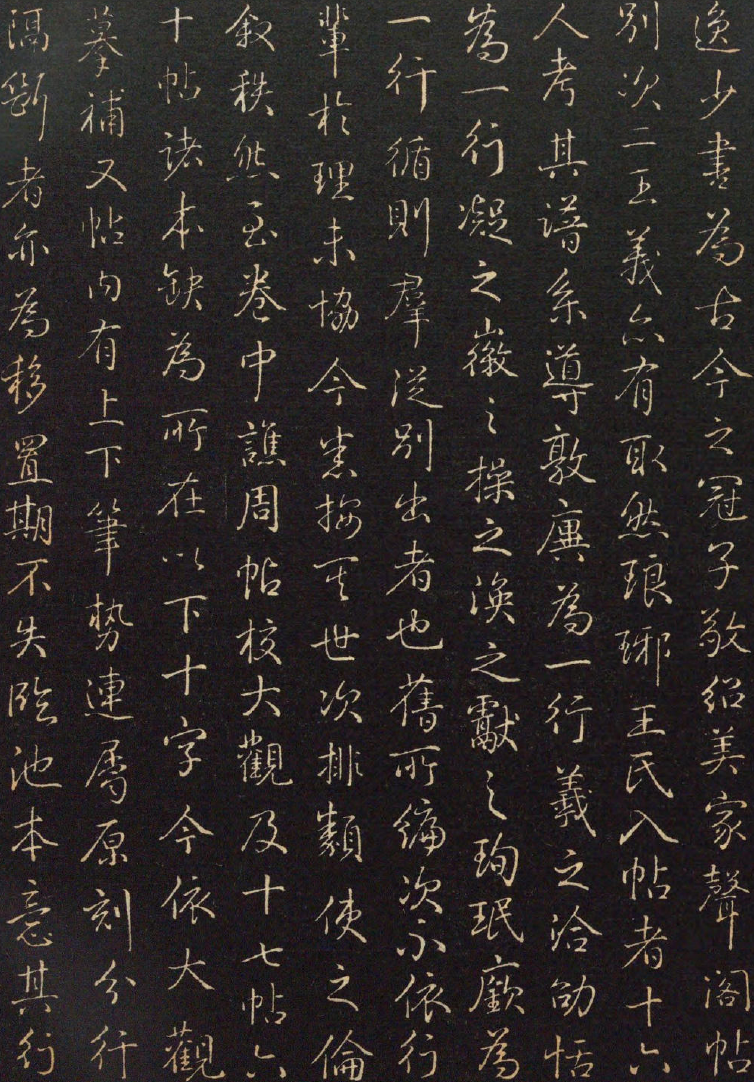 逸少書為古今之冠子敬紹美家聲閣帖
別次二王義亦有取然琅琊王氏入帖者十六
人考其譜系導敦廙為一行羲之洽劭恬
為一行凝之徽之操之渙之獻之珣珉廞為
一行循則羣從別出者也舊所編次不依行
輩於理未協今悉按其世次排類使之倫
敘秩然至卷中譙周帖校大觀及十七帖六
十帖諸本缺為所在以下十字今依大觀
摹補又帖內有上下筆勢連屬原刻分行
隔斷者亦為移置期不失臨池本意其行